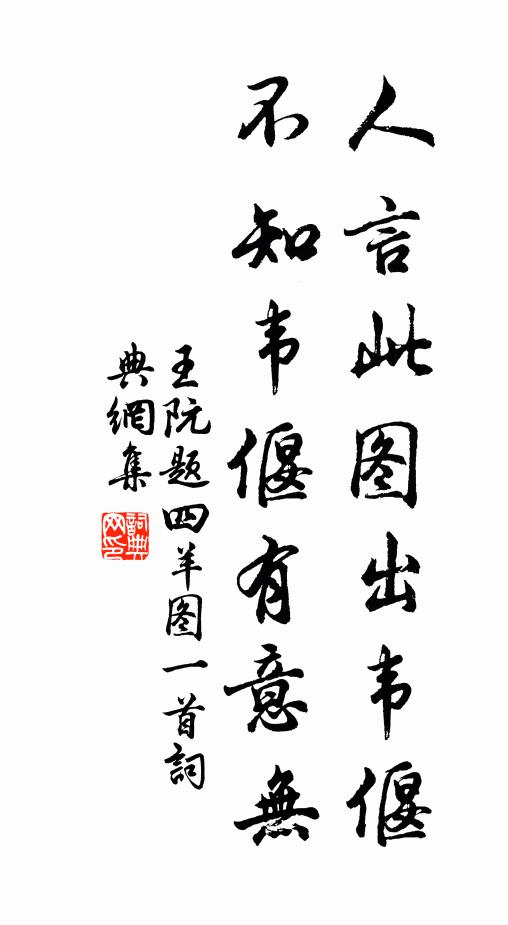 人言此图出韦偃
不知韦偃有意無
王阮题四羊图一首詞
典網集
詞典
网印